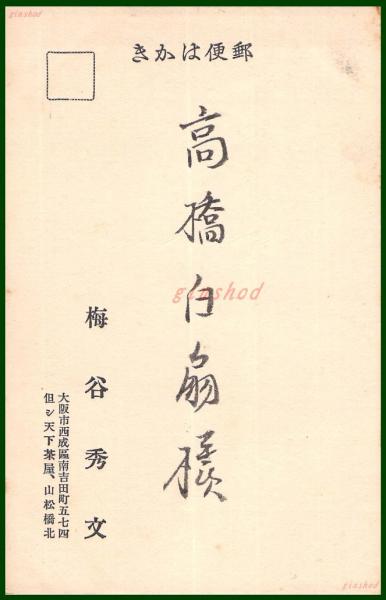 ginshod
郵便はかき
高橋白扇様
ginshod
大阪市西成區南吉田町五七四
但シ天下茶屋、山松橋北
梅谷秀文
ginshod